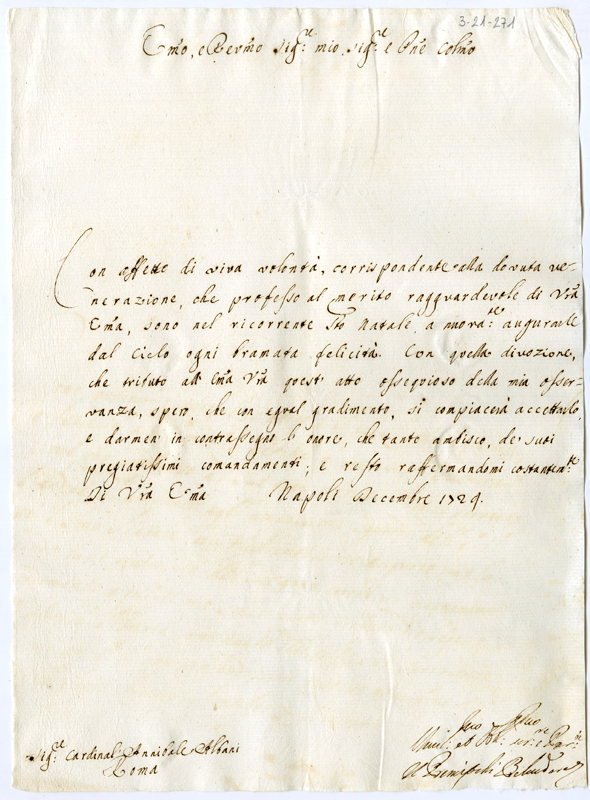 3-21-271
Emo, e Revmo Sig:re mio, sig:re e Pne Colmo
Con affetto di viva volontà, corrispondente alla dovuta ve-
nerazione, che professo al merito ragguardevole di Vra
Ema, sono nel ricorrente Sto Natale, a augurarle
dal Cielo ogni bramata felicità. Con quella divozione,
che tributo all' Ema Vra quest' atto ossequioso della mia osser-
vanza, spero, che con egual gradimento, si compiacerà accettarlo,
e darmen in contrassegno l' onore, che tanto ambisco, de' suoi
pregiatissimi comandamenti; e resto raffermandomi costantem:te
Di Vra Ema Napoli Decembre 1724.
Sig:re Cardinal Annibale Albani
Roma